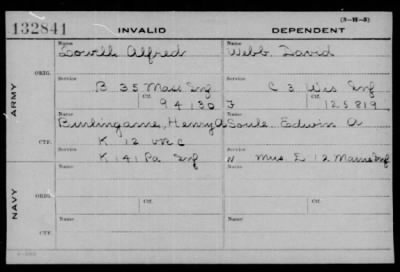 (3-1H-5)
132841 INVALID DEPENDENT
Name Name
Lovell Alfred Webb, David
ORIG.
Service Service
B 35 Mass Inf C 3 Wis Inf
Ctf. Ctf.
94130 125819
ARMY
Name Name
Burlingame, Henry A Soule, Edwin A
CTF.
Service Service
K 12 VRC
K 141 Pa Inf N Mus E 12 Maine Inf
NAVY
Name Name
ORIG.
Service Ctf. Service Ctf.
Name Name
CTF.
Service Service